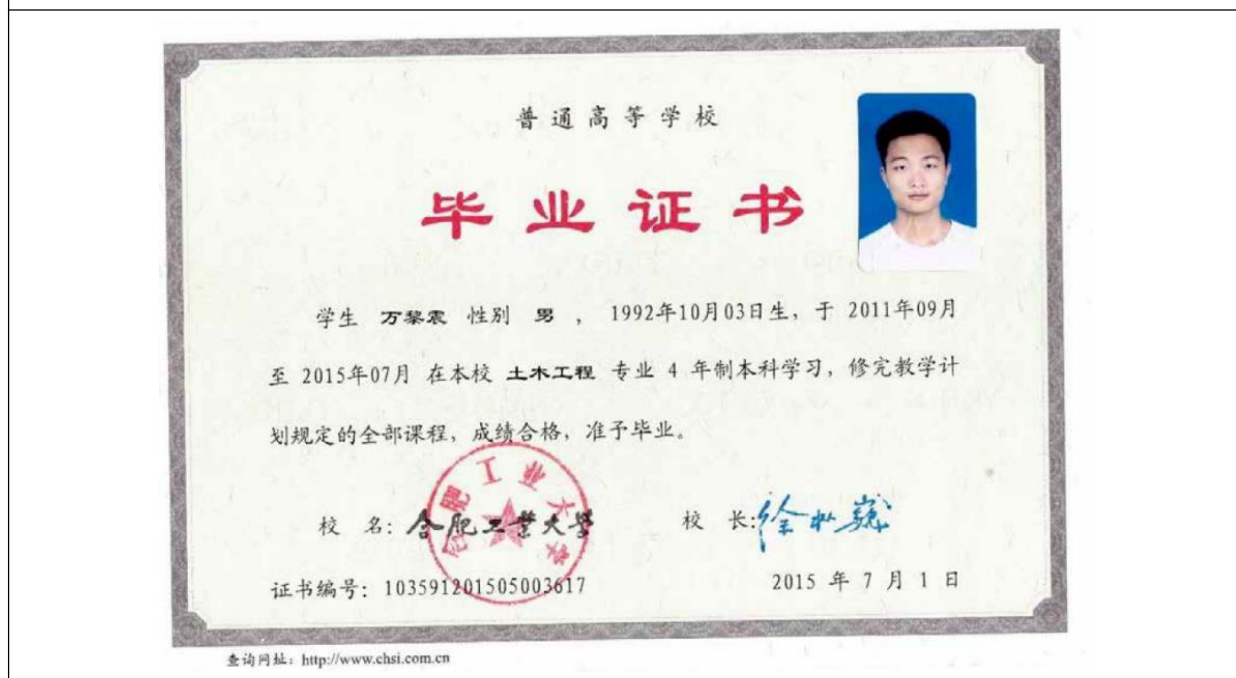 普通高等学校
毕业证书
学生 万黎震 性别 男 ， 1992年10月03日生，于 2011年09月
至 2015年07月 在本校 土木工程 专业 4 年制本科学习，修完教学计
划规定的全部课程，成绩合格，准予毕业。
合肥工业大学
校 名：合肥工業大學 校 长：
证书编号：103591201505003617 2015 年 7 月 1 日
查询网址：http://www.chsi.com.cn